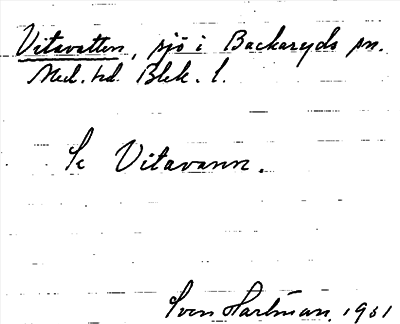 Vitavatten, sjö i Backaryds sn.
Med. hd. Blek. l.
Se Vitavann.
Sven Hartman. 1931